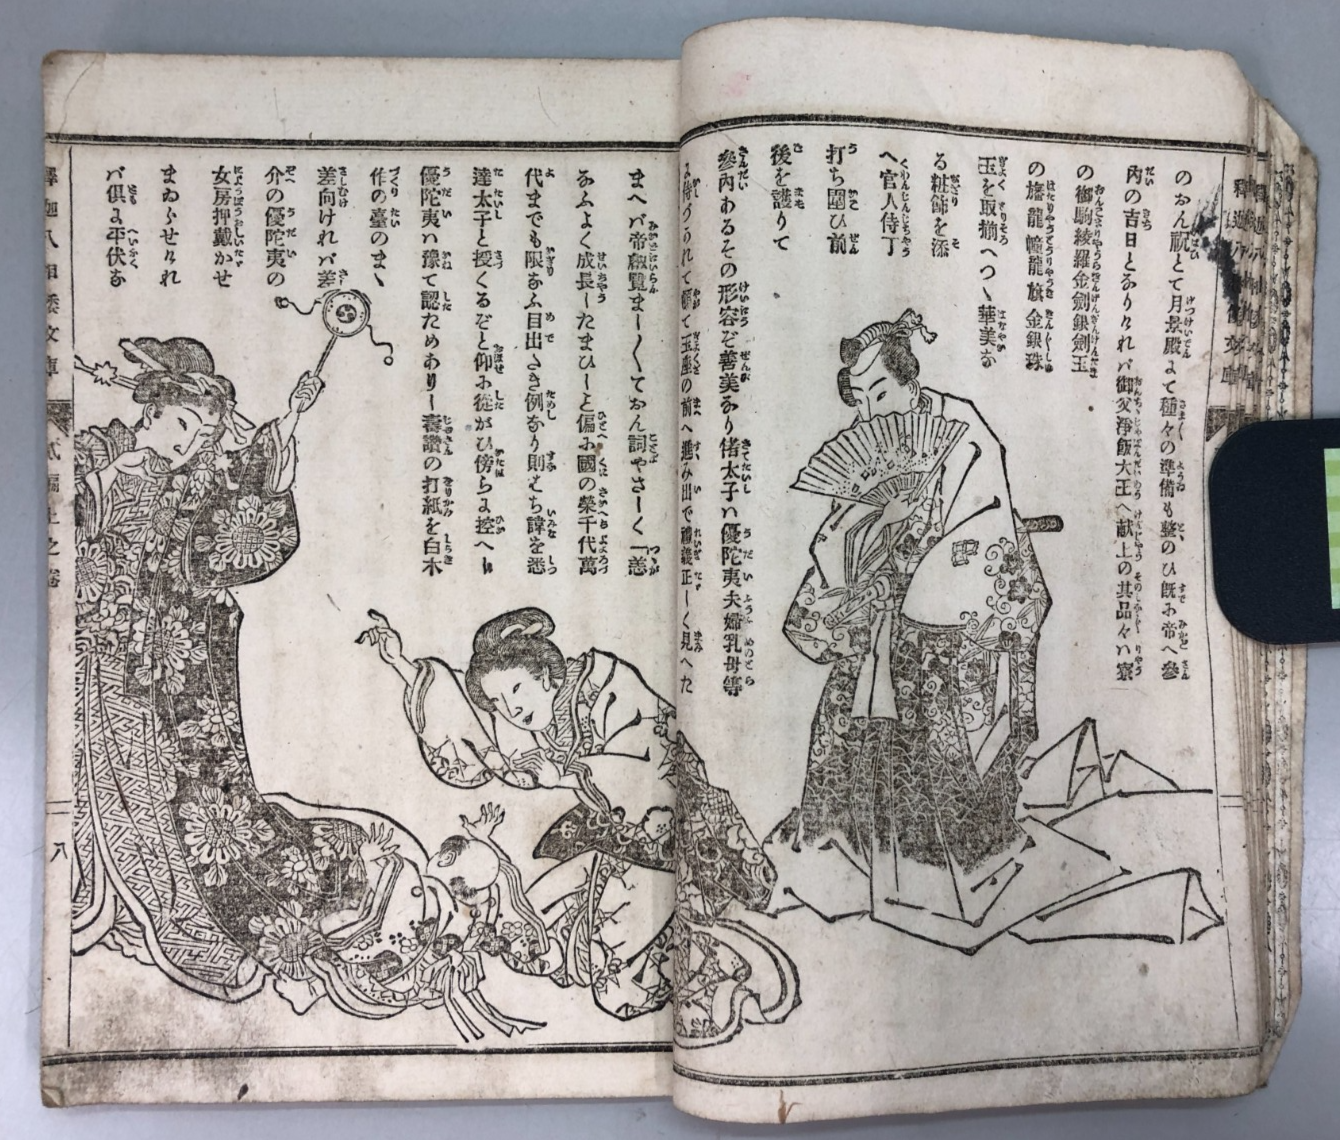 のおん祝とて月景殿よて種々の準備も整のひ既に帝へ參
內の吉日となりけれバ御父淨飯大王へ献上の其品々ハ寮
の御駒綾羅金劍銀劍玉
の旛龍幢龍旗金銀珠
玉を取揃へつゝ華美な
る粧飾を添
へ官人侍丁
打ち圍ひ前
後を護りて
參內あるその形容ぞ善美なり偖太子ハ優陀夷夫婦乳母等
て玉座の前へ進み出で禮義正しく見へた
まへバ帝叡覽ましくておん詞やさしく「恙
なふよく成長したまひしと偏に國の榮千代萬
代までも限なふ目出さき例なり則ち諱を悉
達太子と授くるぞと仰に從がひ傍らよ控へし
優陀夷ハ豫て認ためありし壽讃の打紙を白木
作の臺のまゝ
差向けれバ差
介の優陀夷の
女房押戴かせ
まゐらせけれ
バ俱よ平伏な
釋迦八相倭文庫 貳編上之卷
八